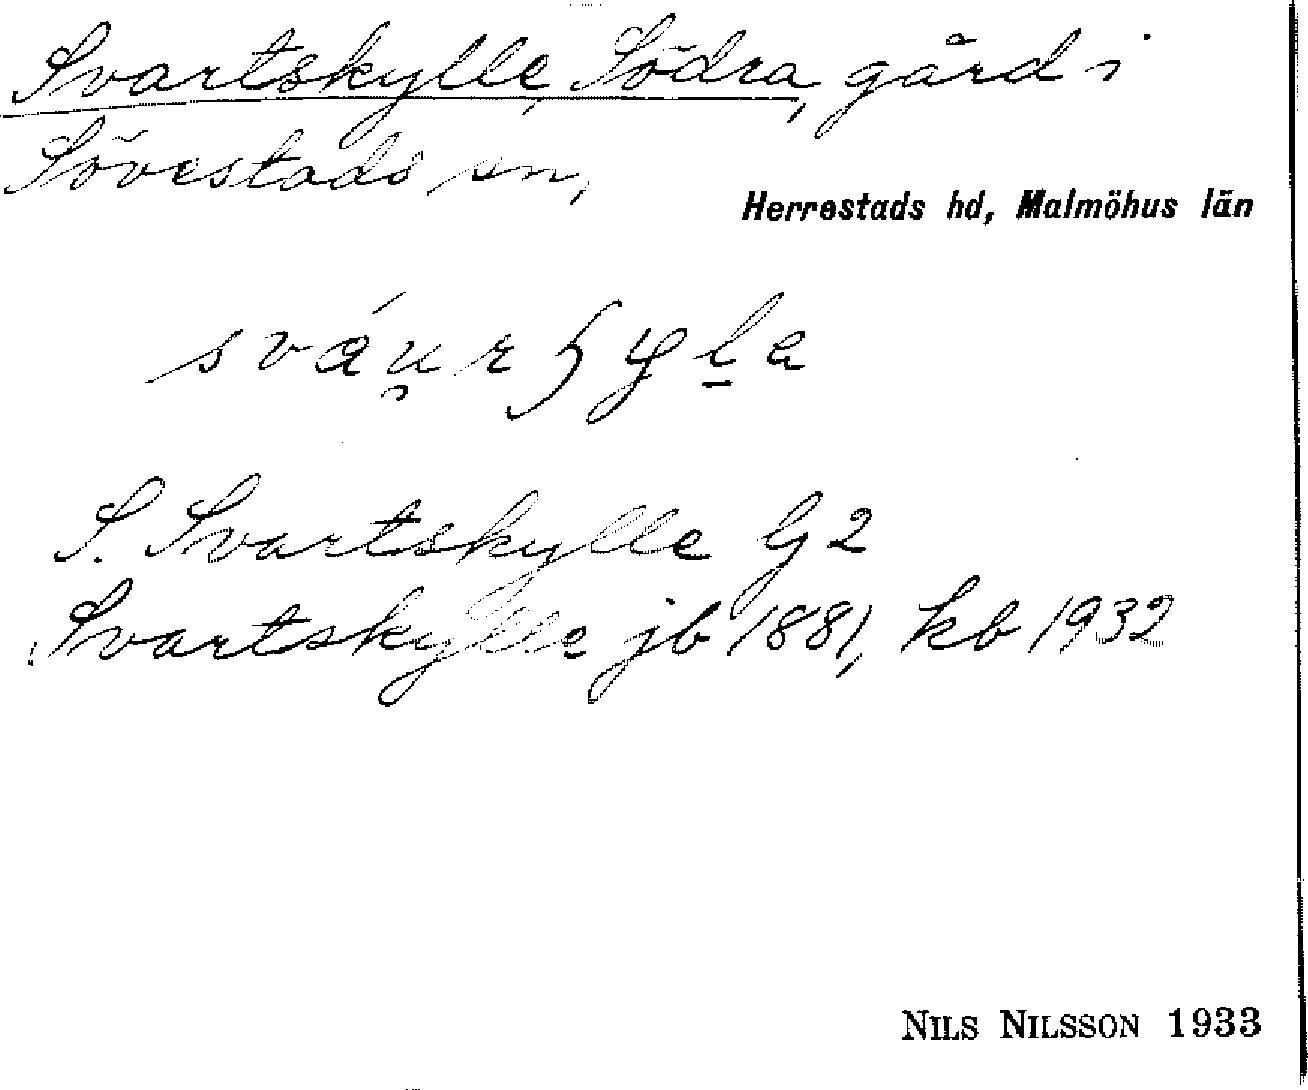 Svartskylle, Södra, gård i
Sövestads sn,
Herrestads hd, Malmöhus län
S. Svartskylle G 2
Svartskylle jb 1881, kb 1932
NILS NILSSON 1933